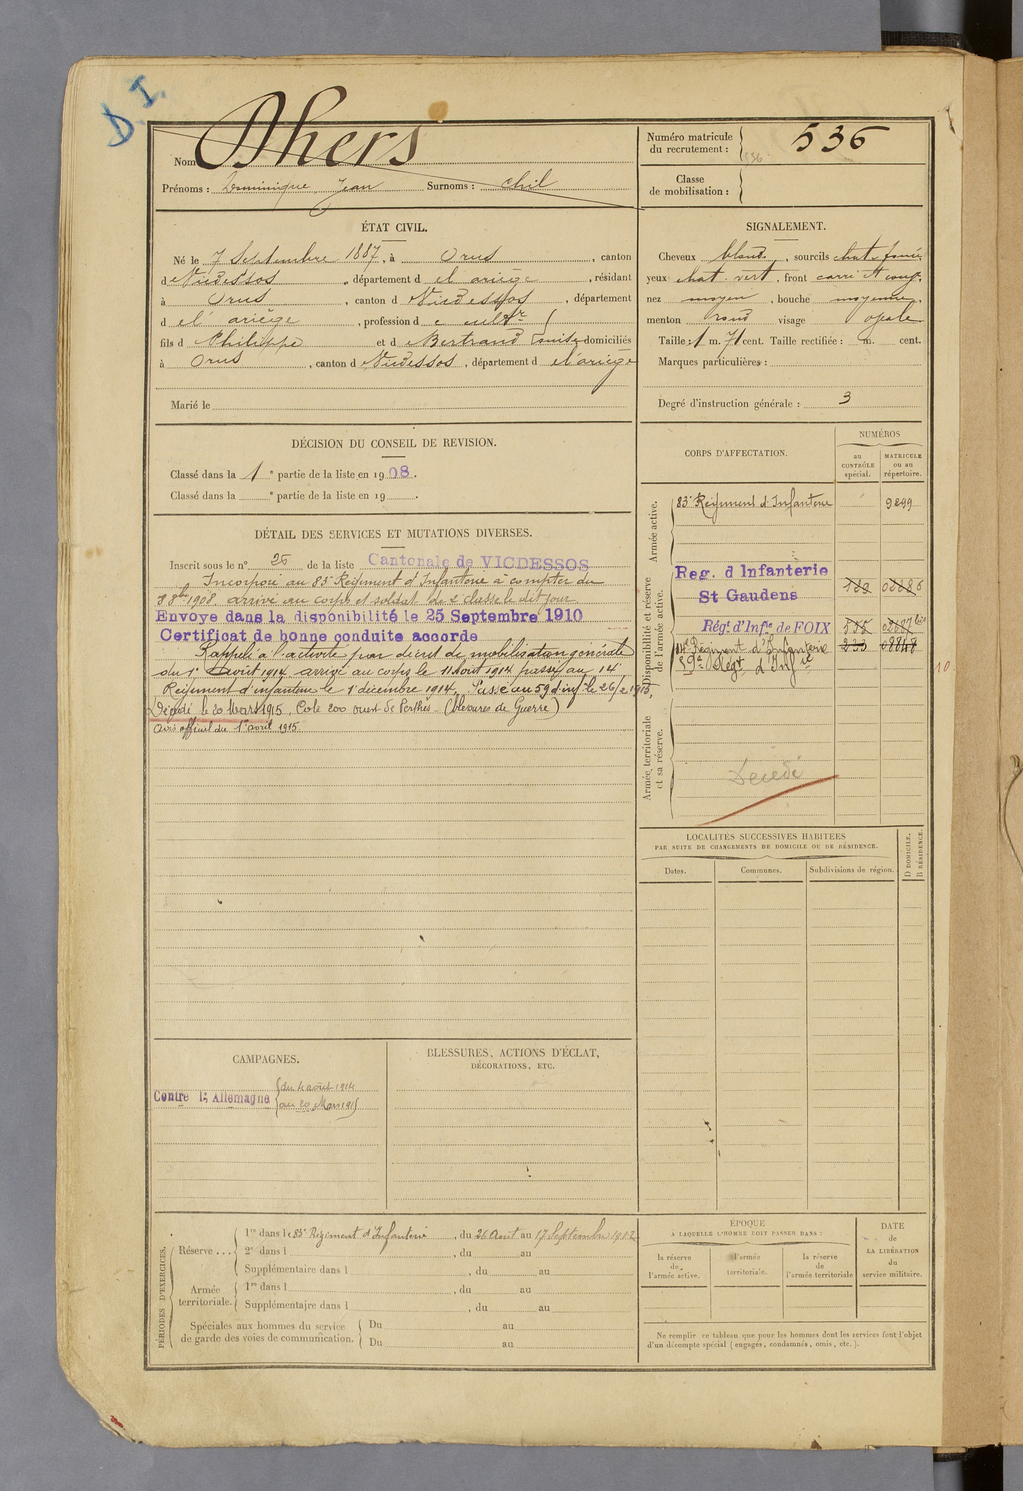 D.I.
Nom Dhers
Prénoms : Dominique Jean Surnoms : chil
Numéro matricule
du recrutement : 536
536
Classe
de mobilisation :
ÉTAT CIVIL.
Né le 7 Septembre 1887, à Orus, canton
d Vicdessos, département d el ariège, résidant
à Orus, canton d Vicdessos, département
d el' ariège, profession d e cultr
fils d Philippe et d Bertrand domiciliés
à Orus, canton d Vicdessos, département d el'ariège
Marié le
SIGNALEMENT.
Cheveux blond, sourcils chat foncé
yeux chat. vert, front carré
nez moyen, bouche moyenne,
menton rond visage
Taille : 1 m. 71 cent. Taille rectifiée : m. cent.
Marques particulières :
Degré d'instruction générale : 3
DÉCISION DU CONSEIL DE REVISION.
Classé dans la 1e partie de la liste en 1908.
Classé dans la e partie de la liste en 19 .
DÉTAIL DES SERVICES ET MUTATIONS DIVERSES.
Inscrit sous le n° 26 de la liste Cantonale de VICDESSOS
Incorporé au 83e Régiment d'Infanterie à compter du
8 8bre 1908. arrivé au corps et soldat de 2e classe le dit jour
Envoye dans la disponibilité le 25 Septembre 1910
Certificat de bonne conduite accorde
Rappelé à l'activité par décret de mobilisation générale
du 1er Août 1914 arrivé au corps le 11 Août 1914 passé au 14e
Régiment d'infanterie le 1er décembre 1914, Passé au 59 d'inf le 26/2 1915,
Décédé le 20 Mars 1915, Cote 200 ouest de Perthes (blessures de Guerre)
Avis officiel du 1er avril 1915
CORPS D'AFFECTATION.
NUMÉROS
au
CONTRÔLE
spécial.
MATRICULE
ou au
répertoire.
Armée active.
83e Régiment d'Infanterie 9299
Disponibilité et réserve
de l'armée active.
Reg. d Infanterie
St Gaudens
Régt d'Infie de FOIX
14e Régiment d'Infanterie
59e Régt d'Infie
10
Armée territoriale
et sa réserve.
Décédé
LOCALITÉS SUCCESSIVES HABITÉES
PAR SUITE DE CHANGEMENTS DE DOMICILE OU DE RÉSIDENCE.
Dates. Communes. Subdivisions de région. D DOMICILE. R RÉSIDENCE.
CAMPAGNES.
Contre l'Allemagne
du 4 août 1914
au 20 Mars 1915
BLESSURES, ACTIONS D'ÉCLAT,
DÉCORATIONS, ETC.
PÉRIODES D'EXERCICES.
Réserve ...
1re dans le 83e Régiment d'Infanterie, du 26 Août au 17 Septembre 1912
2e dans l , du au
Supplémentaire dans l , du au
Armée
territoriale.
1re dans l , du au
Supplémentaire dans l , du au
Spéciales aux hommes du service
de garde des voies de communication.
Du au
Du au
ÉPOQUE
A LAQUELLE L'HOMME DOIT PASSER DANS :
la réserve
de
l'armée active.
l'armée
territoriale.
la réserve
de
l'armée territoriale
DATE
de
LA LIBÉRATION
du
service militaire.
Ne remplir ce tableau que pour les hommes dont les services font l'objet
d'un décompte spécial (engagés, condamnés, omis, etc.).